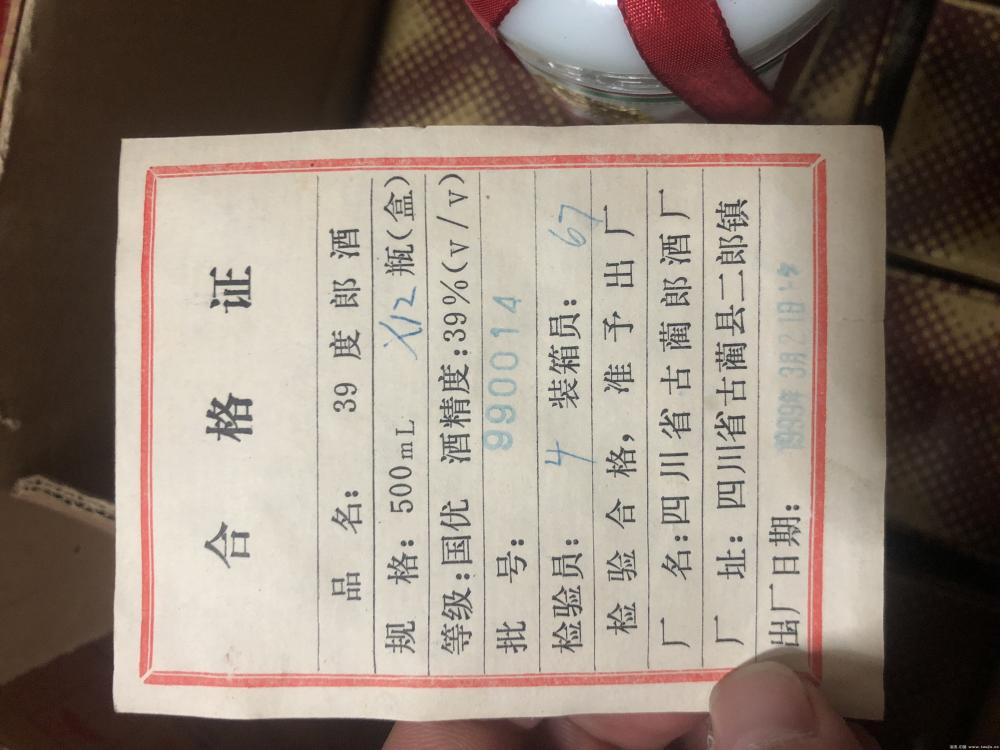 合格证
品 名: 39 度 郎 酒
规 格: 500mL X12 瓶(盒)
等级:国优 酒精度:39%(v/v)
批 号: 990014
检验员: 4 装箱员: 67
检 验 合 格, 准 予 出 厂
厂 名:四川省古蔺郎酒厂
厂 址: 四川省古蔺县二郎镇
出厂日期: 1999年3月21日